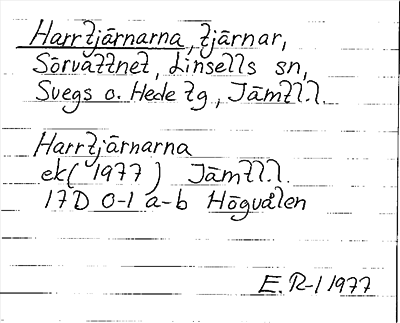 Harrtjärnarna, tjärnar,
Sörvattnet, Linsells sn,
Svegs o. Hede tg, Jämtl.l.
Harrtjärnarna
ek (1977) Jämtl.l.
17D 0-1 a-b Högvålen
E. R-l 1977